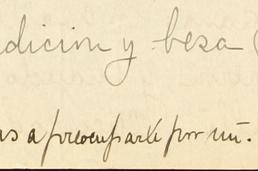 dicion y besa (
as a preocuparte por mi.